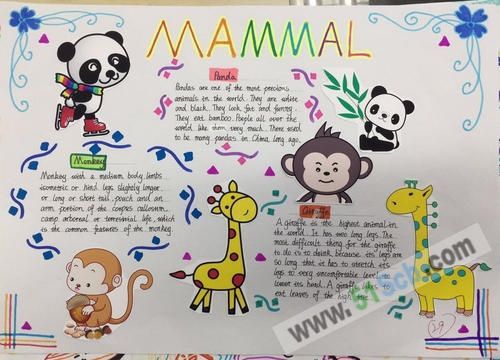 MAMMAL
Panda
Pandas are one of the most precious
animals in the world. They are white
and black. They look fat and funny.
They eat bamboo. People all over the
world like them very much. There used
to be many pandas in China long ago.
Monkey
Monkey with a medium body, limbs
isometric or hind legs slightly longer
or long or short tail, pouch and an
arm portion of the corpus callosum,
camp arboreal or terrestrial life, which
is the common features of the monkey.
Giraffe
A giraffe is the highest animal in
the world. It has two long legs. The
most difficult thing for the giraffe
to do is to drink because its legs are
so long that it has to stretch its
legs to very uncomfortable level to
lower its head. A giraffe likes to
eat leaves of the high tree
www.51ech.com